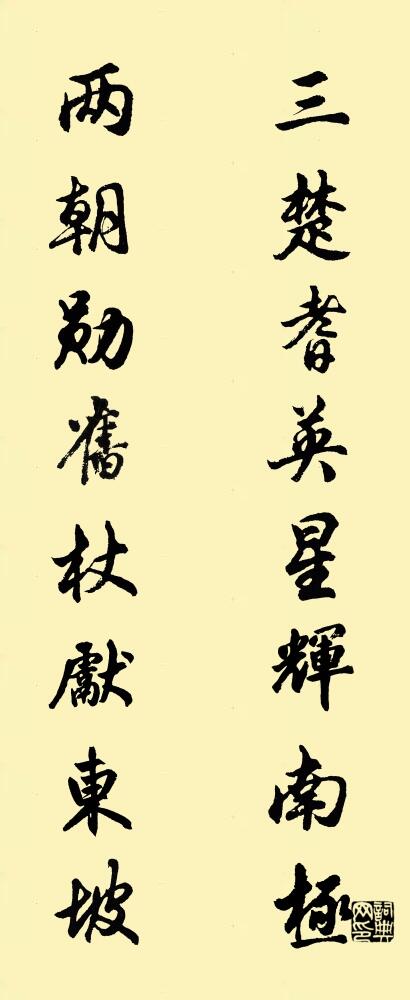 三楚耆英星輝南極
两朝勛舊杖獻東坡
詞典网印